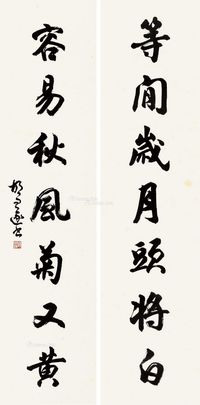 等閒歲月頭將白
容易秋風菊又黃